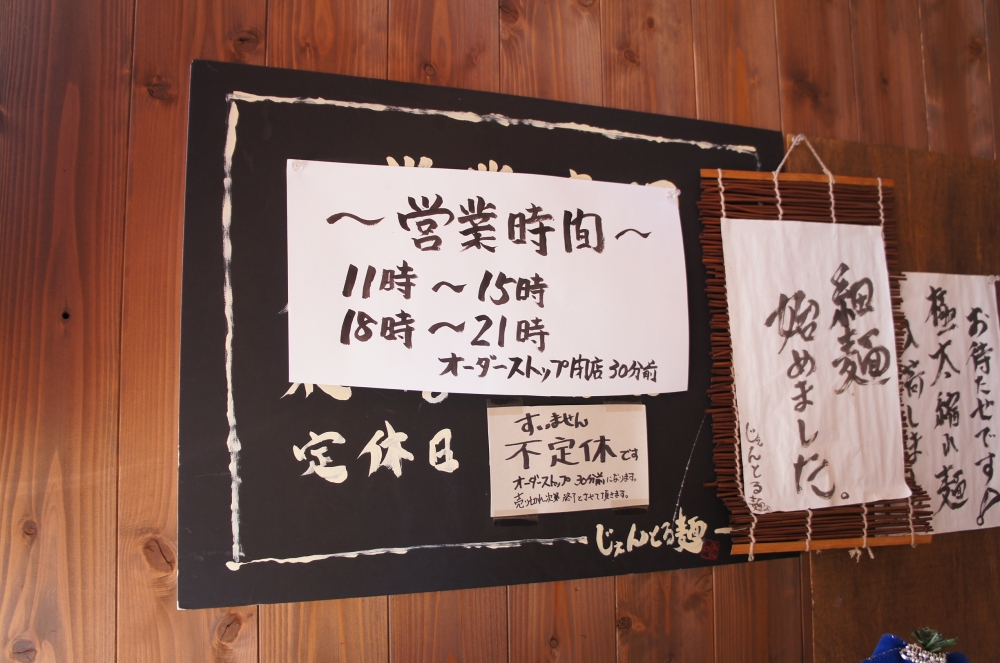 〜営業時間〜
11時〜15時
18時〜21時
オーダーストップ閉店30分前
定休日
すいません
不定休です
オーダーストップ 30分前になります。
売り切れ次第終了とさせて頂きます。
じぇんとる麺
細麺
始めました。
じぇんとる麺
お待たせです!
極太縮れ麺